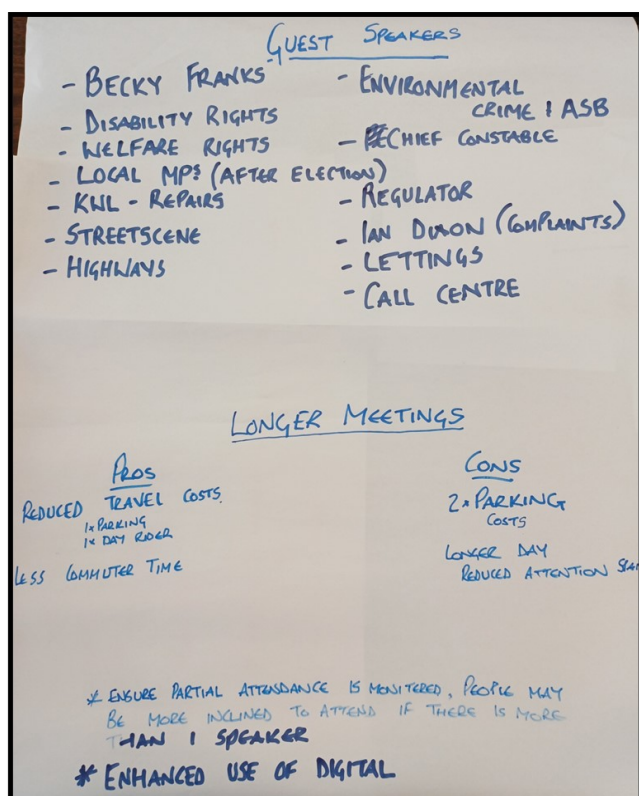 GUEST SPEAKERS
- BECKY FRANKS
- DISABILITY RIGHTS
- WELFARE RIGHTS
- LOCAL MPs (AFTER ELECTION)
- KNL - REPAIRS
- STREETSCENE
- HIGHWAYS
- ENVIRONMENTAL
CRIME / ASB
- CHIEF CONSTABLE
- REGULATOR
- IAN (COMPLAINTS)
- LETTINGS
- CALL CENTRE
LONGER MEETINGS
PROS
REDUCED TRAVEL COSTS
1x PARKING
1x DAY RIDER
LESS COMMUTER TIME
CONS
2x PARKING
COSTS
LONGER DAY
REDUCED ATTENTION SPAN
* ENSURE PARTIAL ATTENDANCE IS MONITERED, PEOPLE MAY
BE MORE INCLINED TO ATTEND IF THERE IS MORE
THAN 1 SPEAKER
* ENHANCED USE OF DIGITAL